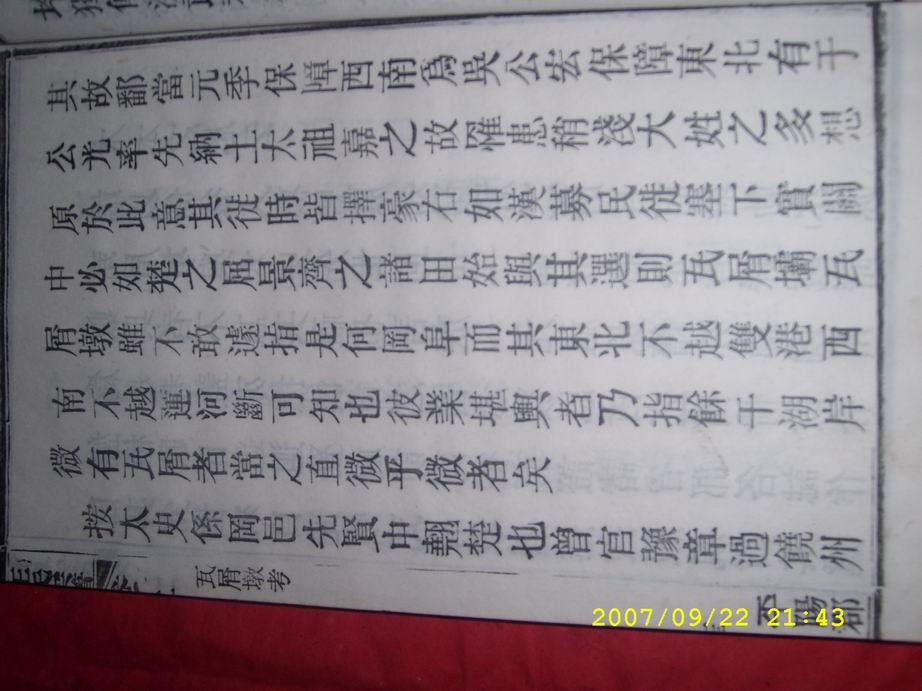 其故鄱當元季保障西南為吳公宏保障東北有于
公光率先納土太祖嘉之故罹患稍淺大姓之多想
原於此意其徙時皆擇豪右如漢募民徙塞下實關
中必如楚之屈景齊之諸田始與其選則瓦屑壩瓦
屑墩雖不敢遽指是何岡阜而其東北不越雙港西
南不越蓮河斷可知也彼業堪輿者乃指餘干湖岸
微有瓦屑者當之直微乎微者矣
按太史係岡邑先賢申楚也曾官豫章過饒州
瓦屑墩考
陽郡
2007/09/22 21:43